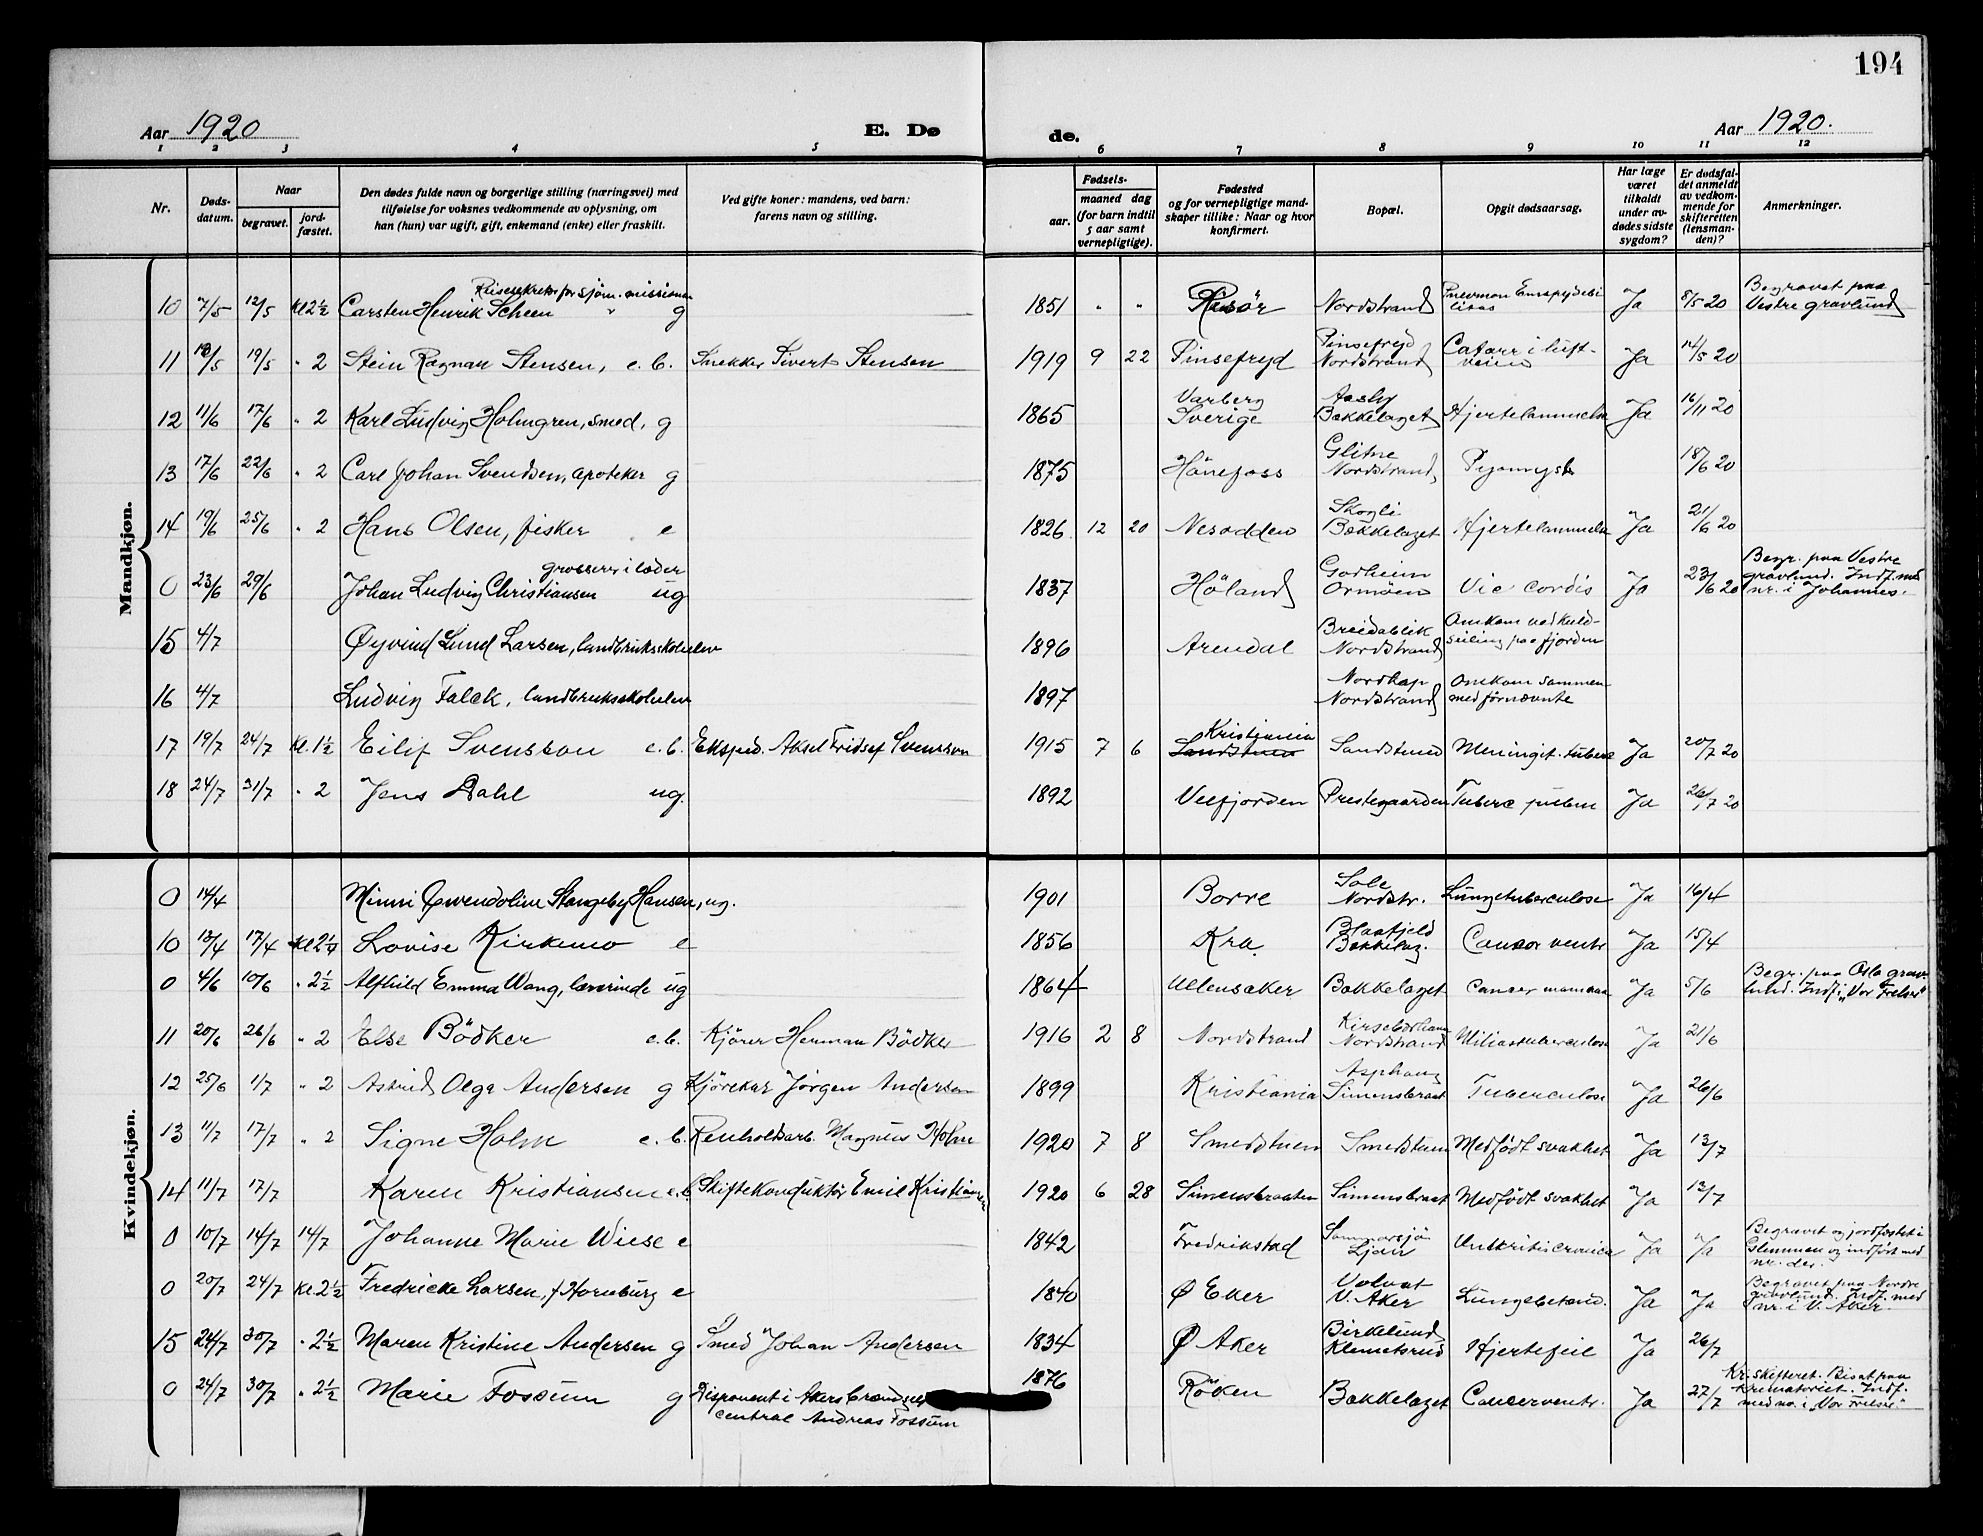 194
Aar 1920 E. Dø de. Aar 1920.
1 2 3 4 5 6 7 8 9 10 11 12
Nr.
Døds-datum.
Naar
begravet.
jord-fæstet.
Den dødes fulde navn og borgerlige stilling (næringsvei) med
tilføielse for voksnes vedkommende av oplysning, om
han (hun) var ugift, gift, enkemand (enke) eller fraskilt.
Ved gifte koner: mandens, ved barn:
farens navn og stilling.
Fødsels-
aar.
maaned dag
(for barn indtil
5 aar samt
vernepligtige).
Fødested
og for vernepligtige mand-
skaper tillike: Naar og hvor
konfirmert.
Bopæl.
Opgit dødsaarsag.
Har læge
været
tilkaldt
under av-
dødes sidste
sygdom?
Er dødsfal-
det anmeldt
av vedkom-
mende for
skifteretten
(lensman-
den)?
Anmerkninger.
Mandkjøn.
10 7/5 12/5 Kl 2½ Carsten Henrik Scheen g 1851 " " Risør Nordstrand Ja 8/5 20 Begravet paa Vestre gravlund
11 19/5 " 2 Stein Ragnar Stensen, e.b. Snekker Sivert Stensen 1919 9 22 Pinsefryd Pinsefryd Nordstrand Catarr i luft-veiene Ja 14/5 20
12 11/6 17/6 " 2 Karl Ludvig Holmgren, smed, g 1865 Varberg Sverige Aasly Bækkelaget Hjertelammelse Ja 16/11 20
13 17/6 22/6 " 2 Carl Johan Svendsen, apoteker g 1875 Hönefoss Glitne Nordstrand 18/6 20
14 19/6 25/6 " 2 Hans Olsen, fisker e 1826 12 20 Nesodden Skogli Bækkelaget Hjertelammelse Ja 21/6 20
0 23/6 29/6 Johan Ludvig Christiansen grosserer i læder ug 1837 Höland Ormöen Vic cordis Ja 23/6 20 Begr. paa Vestre gravlund. Indf. med nr. i Johannes.
15 4/7 Øyvind Lund Larsen, landbruksskoleelev 1896 Arendal Breidablik Nordstrand Omkom ved kuld-seiling paa fjorden
16 4/7 Ludvig Falck, landbruksskoleelev 1897 Nordkap Nordstrand Omkom sammen med førnævnte
17 19/7 24/7 Kl. 1½ Eilif Svensson e.b. Eksped. Aksel Fridsef Svensson 1915 7 6 Kristiania Sandstuen Sandstuen Meningit. tuberc Ja 20/7 20
18 24/7 31/7 " 2 Jens Dahl ug. 1892 Velfjorden Prestegaarden Tuberc pulm Ja 26/7 20
Kvindekjøn.
0 14/4 Minni Gwendoline Stangeby Hansen, ug. 1901 Borre Sole Nordstr. Lungetuberculose Ja 16/4
10 13/4 17/4 Kl 2¼ Lovise Kirkemo e 1856 Kra. Blaafjeld Bækkelag. Cancer ventr Ja 15/4
0 4/6 10/6 " 2½ Alfhild Emma Wang, lærerinde ug 1864 Ullensaker Bækkelaget Cancer mammae Ja 5/6 Begr. paa Oslo grav-lund. Indf. i "Vor Frelser"
11 20/6 26/6 " 2 Else Bödker e.b. Kjörer Herman Bödker 1916 2 8 Nordstrand Nordstrand Miliartuberculose Ja 21/6
12 25/6 1/7 " 2 Astrid Olga Andersen g Kjörekar Jörgen Andersen 1899 Kristiania Asphaug Simensbraat Tuberculose Ja 26/6
13 11/7 17/7 " 2 Signe Holm e.b. Renholdsarb. Magnus Holm 1920 7 8 Smedstuen Smedstuen Medfödt svakhet Ja 13/7
14 11/7 17/7 Karen Kristiansen e.b. Skiftekonduktör Emil Kristiansen 1920 6 28 Simensbraaten Simensbraat Medfödt svakhet Ja 13/7
0 10/7 14/7 14/7 Johanne Marie Wiese e 1842 Fredrikstad Ljan Ja Ja Begravet og jordfæstet i Glemmen og indført med nr. der.
0 20/7 24/7 Kl. 2½ Fredricke Larsen, f Hornburg e 1840 Ø Eker Volvat V. Aker Lungebetænd. Ja Ja Begravet paa Nordre gravlund. Indf. med nr. i V. Aker.
15 24/7 30/7 " 2½ Maren Kristine Andersen g Smed Johan Andersen 1834 Ø Aker Birkelund Klemetsrud Hjertefeil Ja 26/7
0 24/7 30/7 " 2½ Marie Fossum g Disponent i Akers brændsels central Andreas Fossum 1876 Röken Bækkelaget Cancer ventr. Ja 27/7 Kr. skifteret. Bisat paa krematoriet. Indf. med no. i "Vor Frelser"